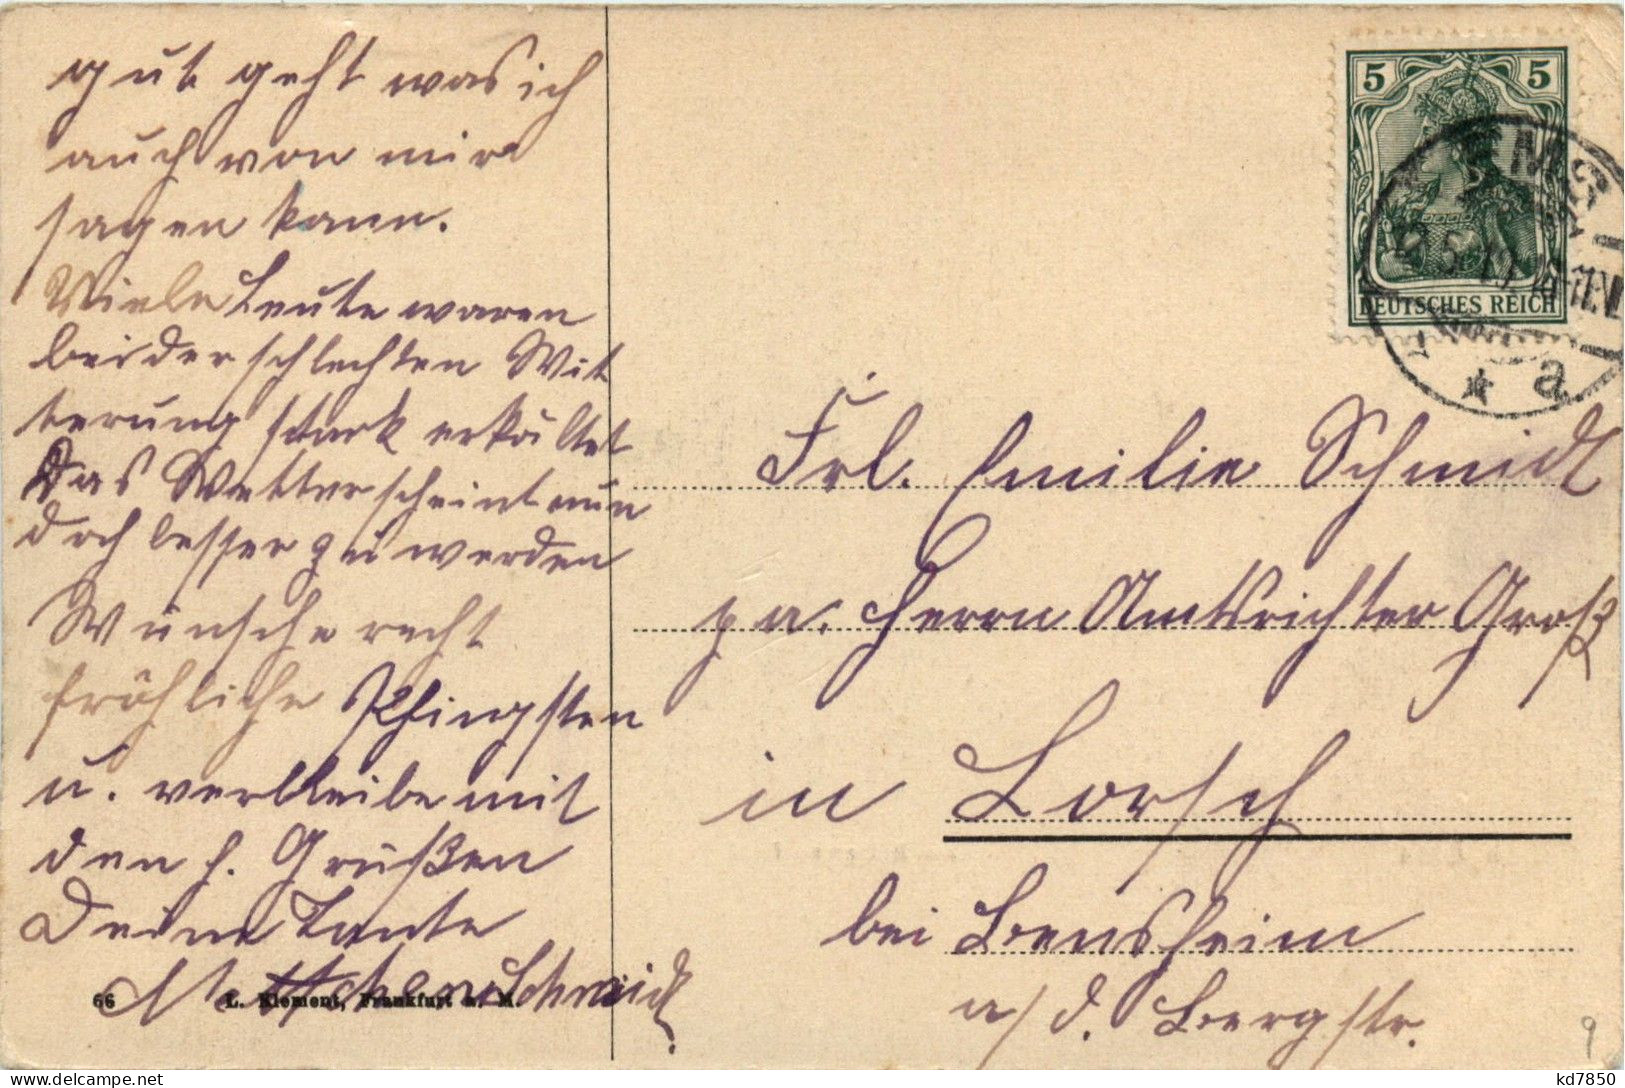 gut geht was ich
auch von mir
sagen kann.
Viele Leute waren
bei der schlechten Wit
terung stark erkältet
Das Wetter scheint nun
doch besser zu werden
Wünsche recht
fröhliche Pfingsten
u. verbleibe mit
den h. Grüßen
Deine Tante
Schmidt
66 L. Klement, Frankfurt a. M.
5 5
DEUTSCHES REICH
EMS
* a
Frl. Emilie Schmidt
pa. Herrn Amtsrichter Groß
in Lorsch
bei Bensheim
a/d. Bergstr.
9
kd7850